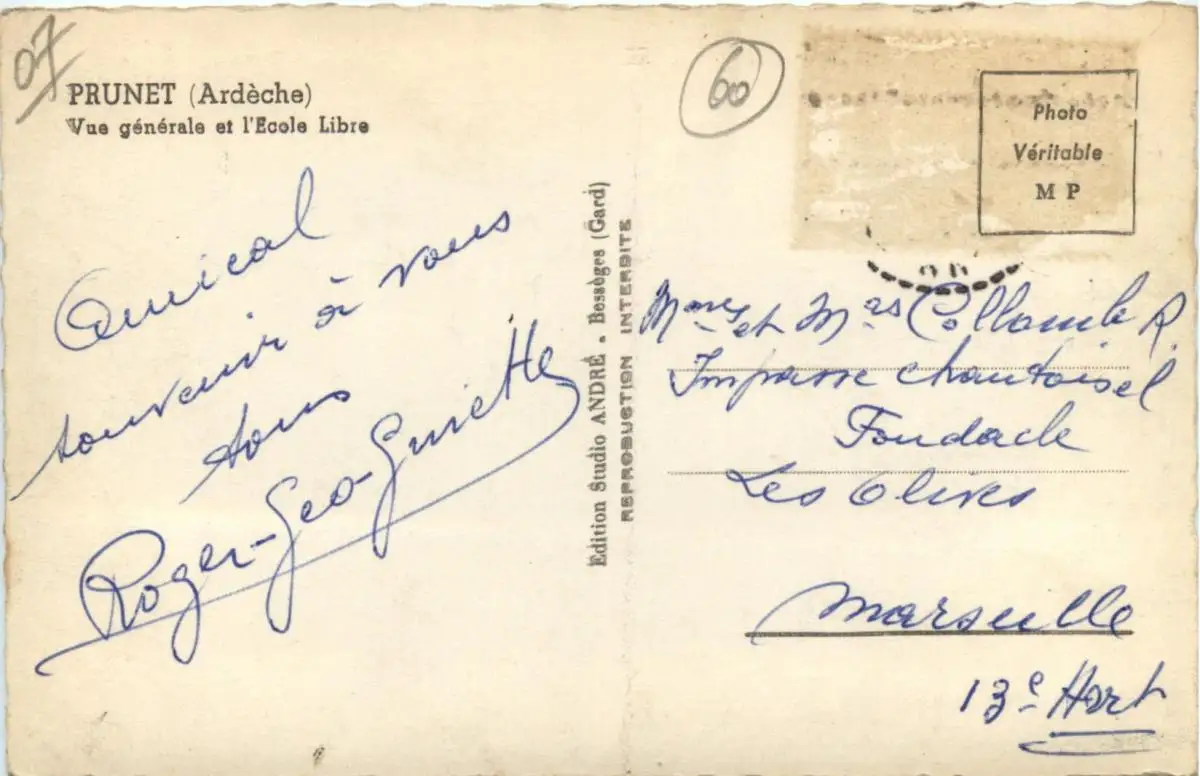 07
PRUNET (Ardèche)
Vue générale et l'Ecole Libre
60
Photo
Véritable
M P
Amical
souvenir à vous
tous
Roger-Geo-Guiette
Edition Studio ANDRÉ . Bessèges (Gard)
REPRODUCTION INTERDITE
et Collombe R.
Impasse chantoisel
Fondacle
Les Olives
Marseille
13e Arrt